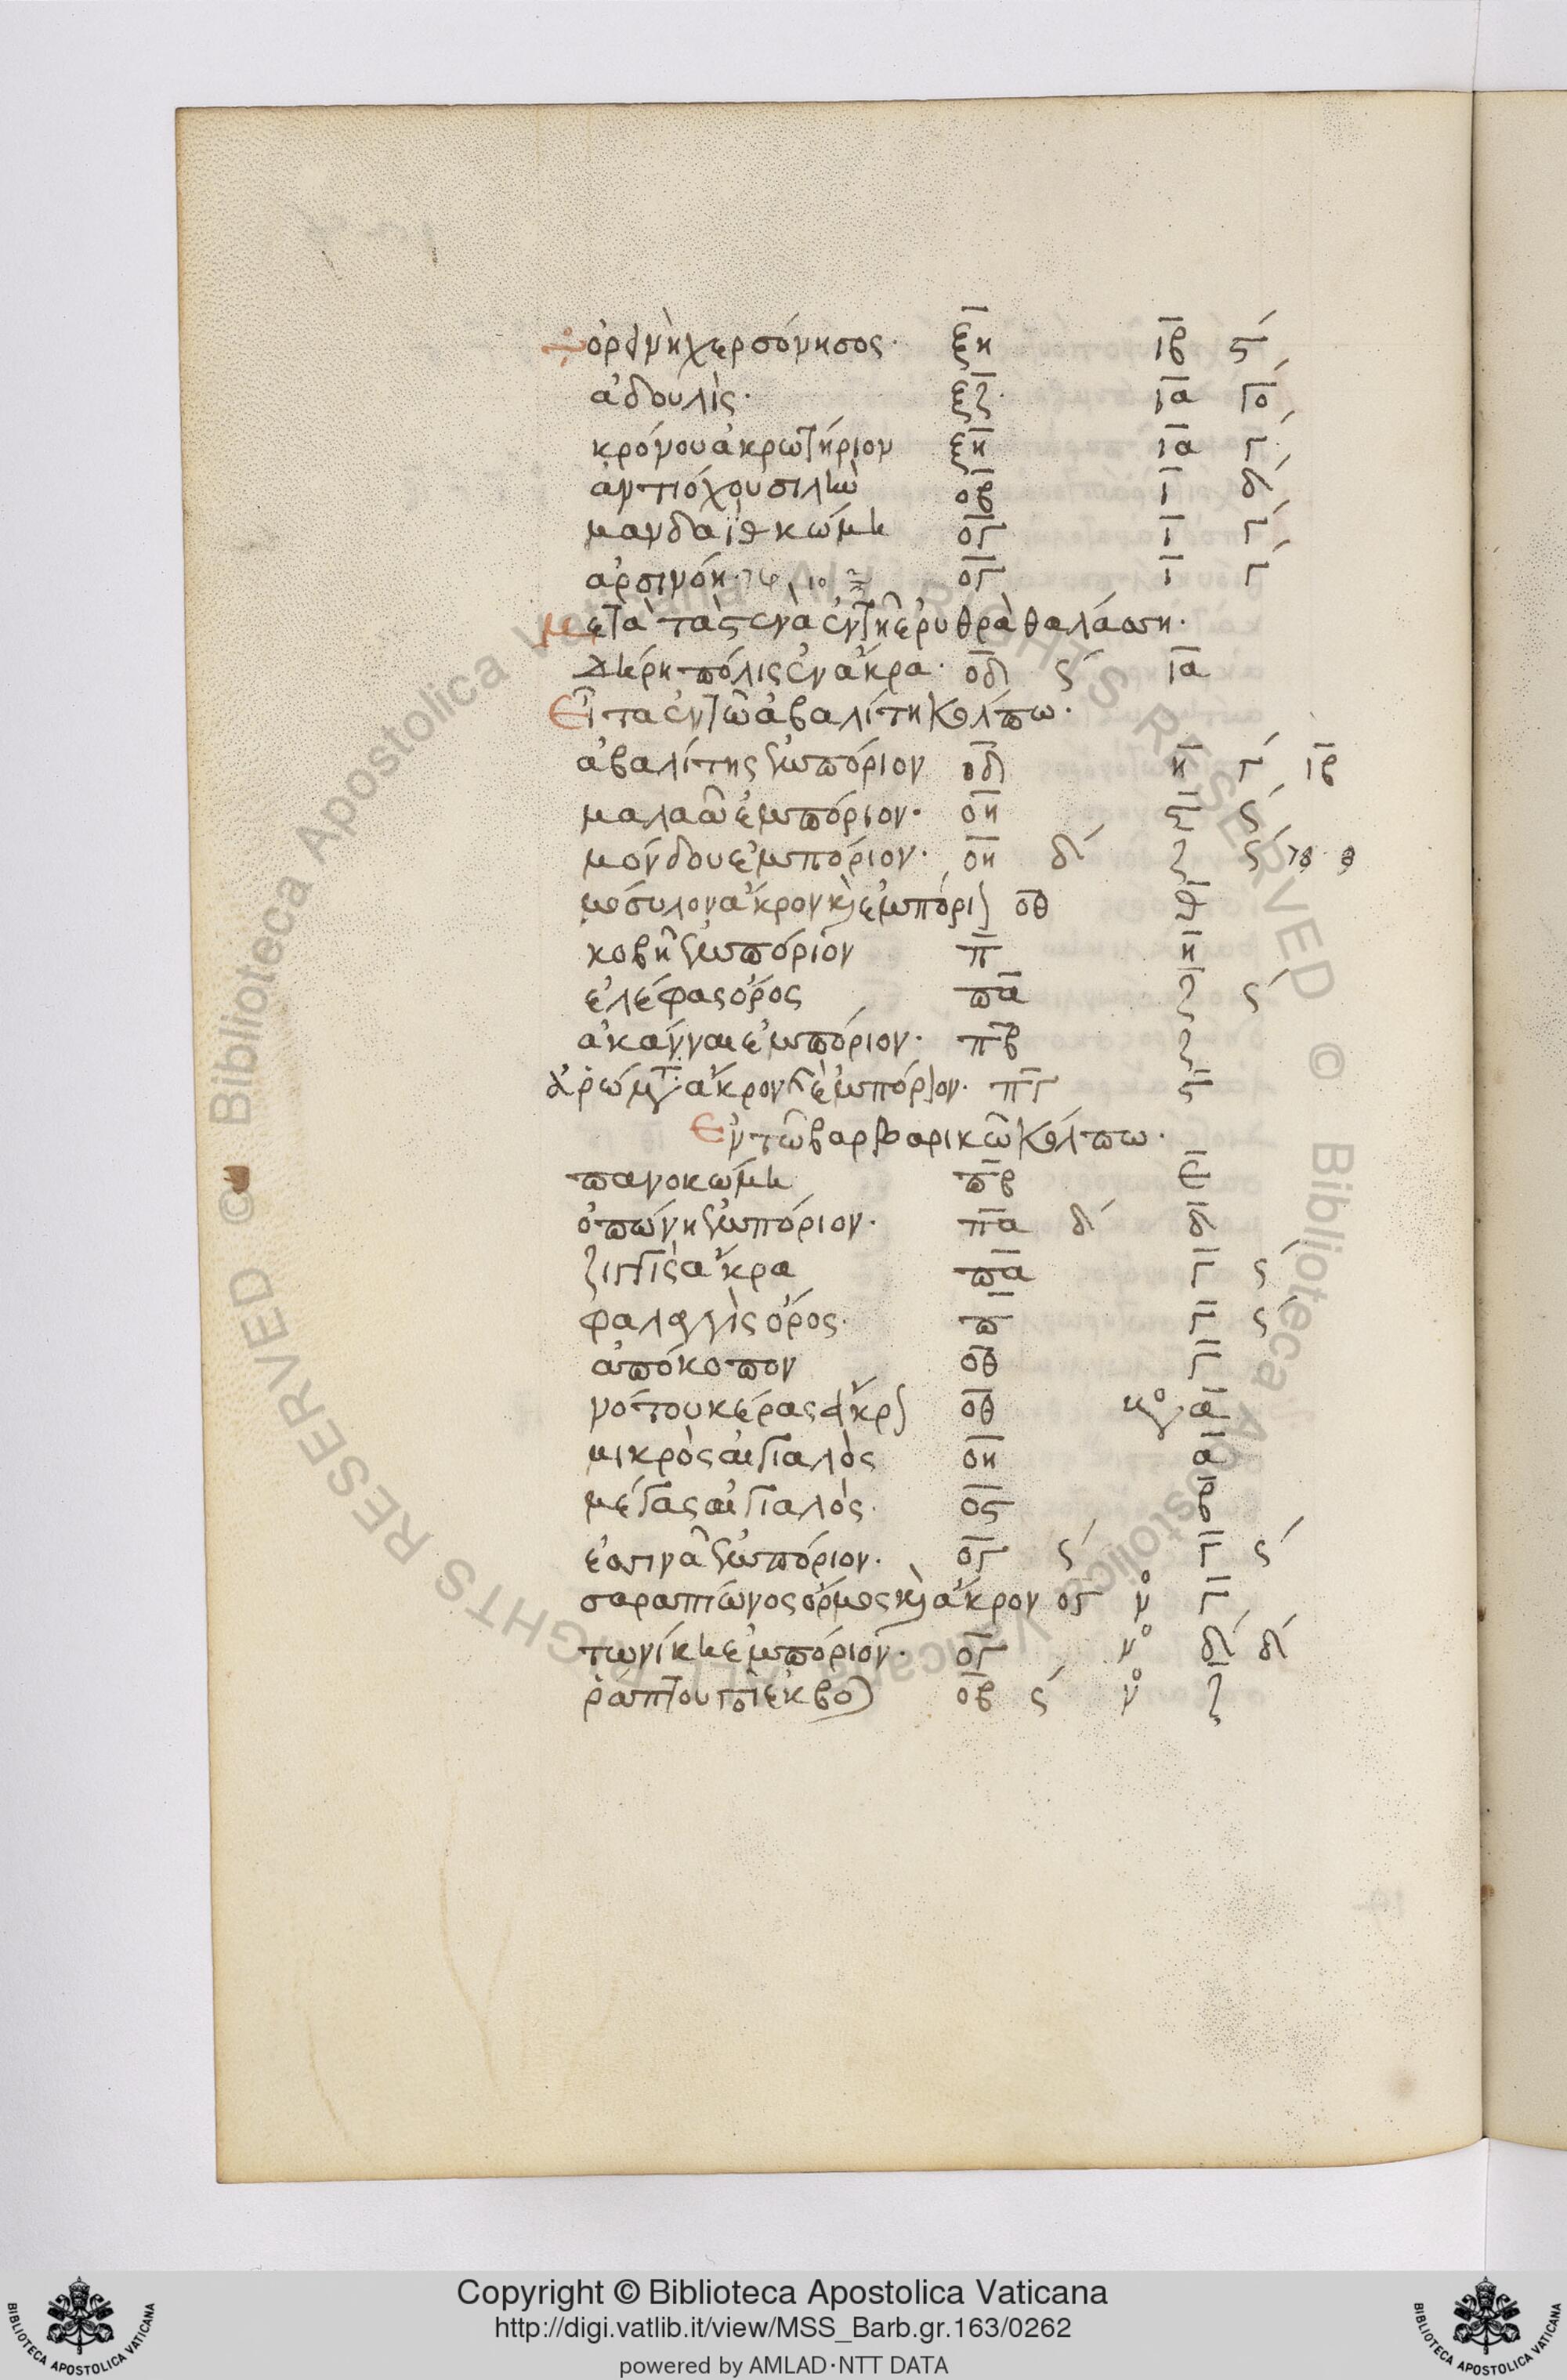 ὀρινὴ χερσόνησος· ξη ιβ ϛ´
ἀδουλίς· ξζ· ια γο´
κρόνου ἀκρωτήριον ξη ια γ´
ἀντιόχου σιλὼ οβ ι δ´
μανδαὶθ κώμη ογ ι γ´
ἀρσινόη· ογ ι γ´
μετὰ τὰ στενὰ ἐν τῇ ἐρυθρὰ θαλάσση·
Διέρη πόλις ἐν ἄκρα· οδ ϛ´ ια
Εἶτα ἐν τῶ ἀβαλίτη κόλπω·
ἀβαλίτης ἐμπόριον οδ η γ´ ιβ
μαλαῶ ἐμπόριον· οη ϛ ϛ´
μόνδου ἐμπόριον· οη δ´ ζ ϛ´
μόσυλον ἄκρον κὶ ἐμπόρι οθ θ
κοβῆ ἐμπόριον π η
ἐλέφας ὄρος πα ζ ϛ´
ἀκάνναι ἐμπόριον· πβ ζ
ἀρώματ ἄκρον κὶ ἐμπόριον· πγ ϛ
Ἐν τῶ βαρβαρικῶ κόλπω·
πανοκώμη πβ ε
ὀπώνη ἐμπόριον· πα δ´ δ
ζιγγὶς ἄκρα πα γ ϛ´
φαλαγγὶς ὄρος· π γ ϛ´
ἀπόκοπον οθ γ
νότου κέρας ἄκρ οθ α
μικρὸς αἰγιαλὸς οη α
μέγας αἰγιαλός· οϛ β
ἐσσινᾶ ἐμπόριον· ογ ϛ´ γ ϛ´
σαραπίωνος ὅρμος κὶ ἄκρον ογ νο γ
τωνίκη ἐμπόριον· ογ νο δ´ δ´
ῥάπτου ποτ ἐκβο οβ ϛ´ νο ζ
Copyright © Biblioteca Apostolica Vaticana
http://digi.vatlib.it/view/MSS_Barb.gr.163/0262
powered by AMLAD·NTT DATA
BIBLIOTECA APOSTOLICA VATICANA
BIBLIOTECA APOSTOLICA VATICANA
Biblioteca Apostolica Vaticana ALL RIGHTS RESERVED ©
Biblioteca Apostolica Vaticana ALL RIGHTS RESERVED ©